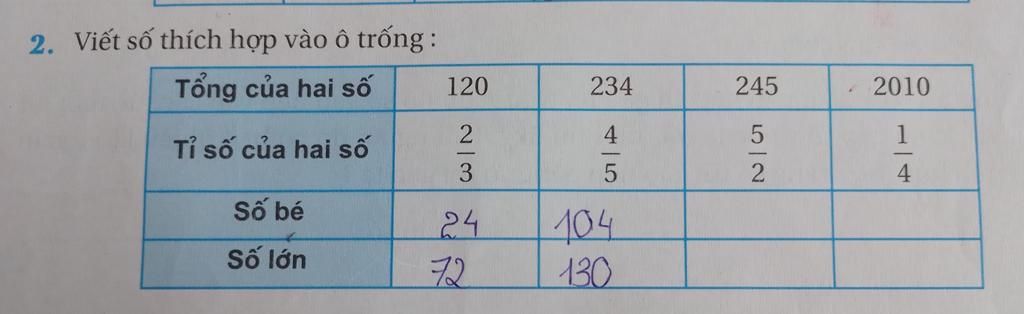 2. Viết số thích hợp vào ô trống :
Tổng của hai số 120 234 245 2010
Tỉ số của hai số 2/3 4/5 5/2 1/4
Số bé 24 104
Số lớn 72 130